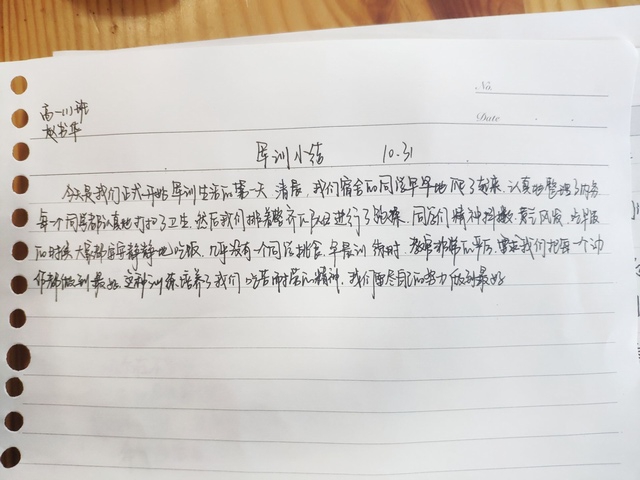 No.
Date
高一(1)班
赵书华
军训小结 10.31
今天是我们正式开始军训生活的第一天 清晨,我们宿舍的同学早早地爬了起来,认真地整理了内务
每一个同学都认真地打扫了卫生,然后我们排着整齐的队伍进行了跑操,同学们精神抖擞,意气风发,吃早饭
的时候大家都安安静静地吃饭,几乎没有一个同学挑食,早晨训练时,教官非常的严厉,要求我们把每一个动
作都做到最好,这种训练培养了我们吃苦耐劳的精神,我们要尽自己的努力做到最好